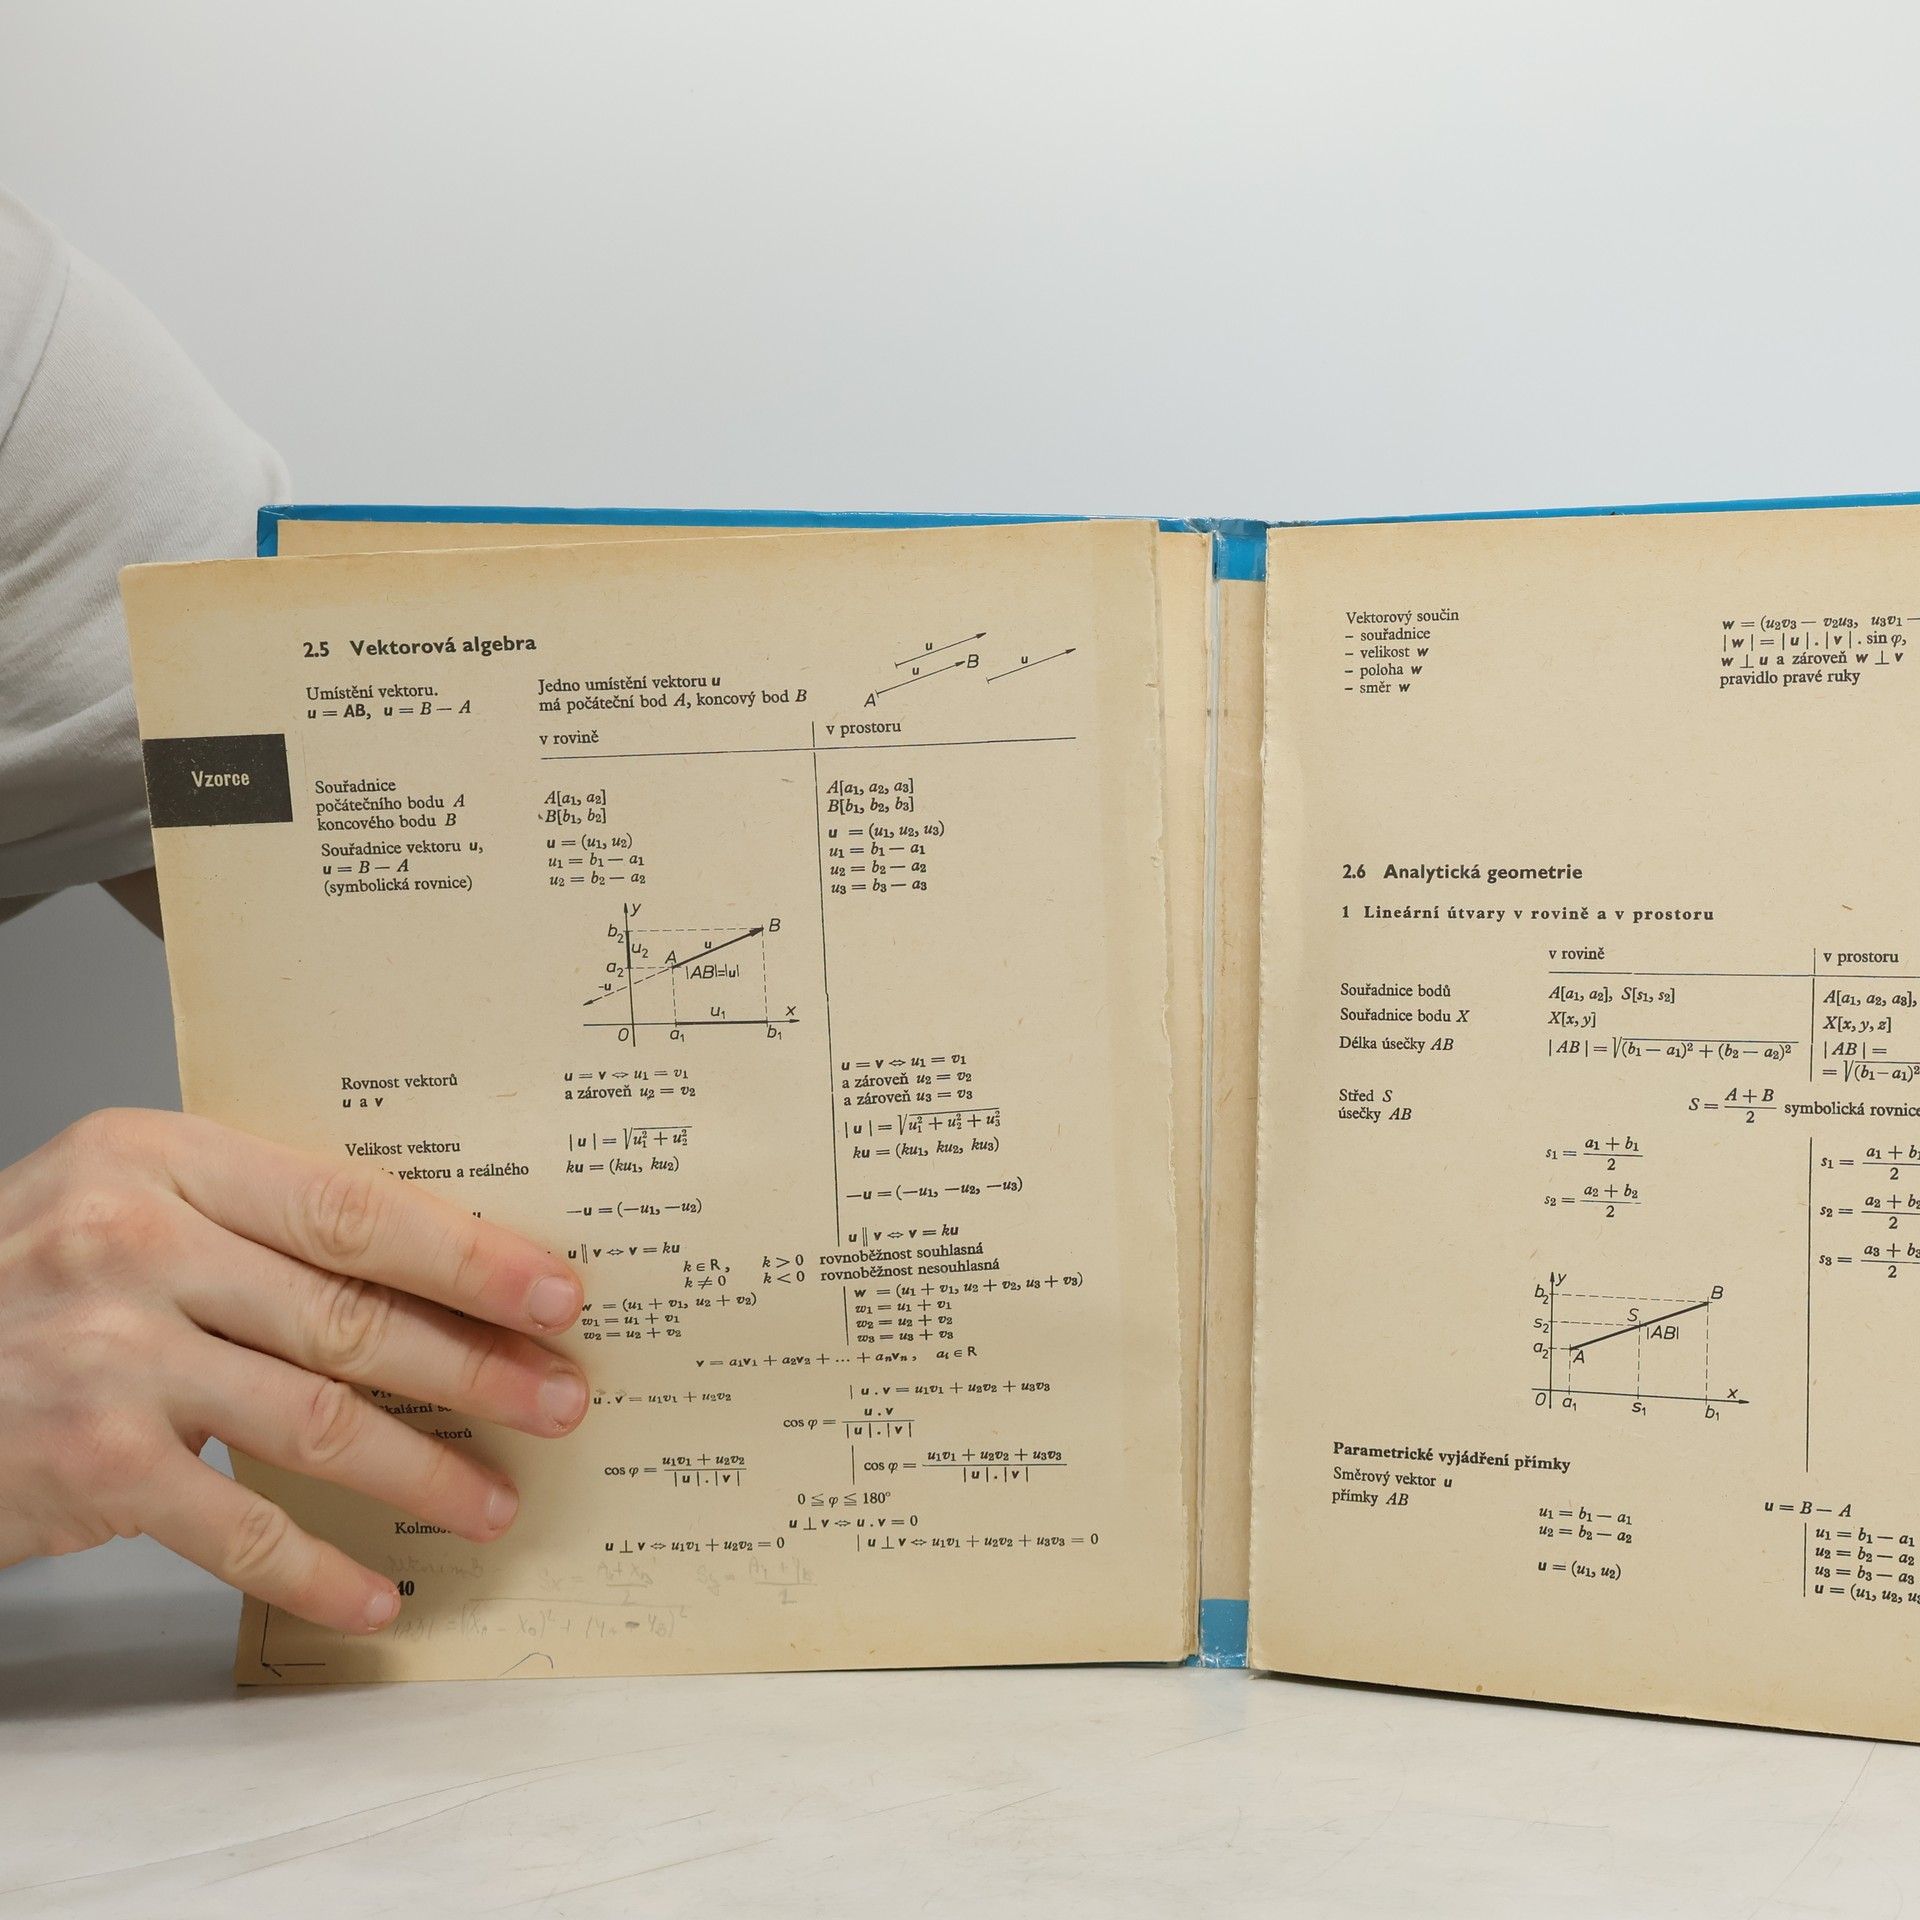 2.5 Vektorová algebra
u
u
B
u
A
Umístění vektoru.
u = AB, u = B − A
Jedno umístění vektoru u
má počáteční bod A, koncový bod B
v rovině
v prostoru
Vzorce
Souřadnice
počátečního bodu A
koncového bodu B
A[a₁, a₂]
B[b₁, b₂]
A[a₁, a₂, a₃]
B[b₁, b₂, b₃]
Souřadnice vektoru u,
u = B − A
(symbolická rovnice)
u = (u₁, u₂)
u₁ = b₁ − a₁
u₂ = b₂ − a₂
u = (u₁, u₂, u₃)
u₁ = b₁ − a₁
u₂ = b₂ − a₂
u₃ = b₃ − a₃
y
b₂
u₂
u
B
a₂
A
|AB|=|u|
-u
u₁
x
O
a₁
b₁
Rovnost vektorů
u a v
u = v ⇔ u₁ = v₁
a zároveň u₂ = v₂
u = v ⇔ u₁ = v₁
a zároveň u₂ = v₂
a zároveň u₃ = v₃
Velikost vektoru
|u| = √(u₁² + u₂²)
|u| = √(u₁² + u₂² + u₃²)
vektoru a reálného
ku = (ku₁, ku₂)
ku = (ku₁, ku₂, ku₃)
−u = (−u₁, −u₂)
−u = (−u₁, −u₂, −u₃)
u ∥ v ⇔ v = ku
u ∥ v ⇔ v = ku
k ∈ R, k > 0 rovnoběžnost souhlasná
k ≠ 0 k < 0 rovnoběžnost nesouhlasná
w = (u₁ + v₁, u₂ + v₂)
w₁ = u₁ + v₁
w₂ = u₂ + v₂
w = (u₁ + v₁, u₂ + v₂, u₃ + v₃)
w₁ = u₁ + v₁
w₂ = u₂ + v₂
w₃ = u₃ + v₃
v = a₁v₁ + a₂v₂ + ... + aₙvₙ, aᵢ ∈ R
u . v = u₁v₁ + u₂v₂
u . v = u₁v₁ + u₂v₂ + u₃v₃
cos φ = u . v / |u| . |v|
cos φ = u₁v₁ + u₂v₂ / |u| . |v|
cos φ = u₁v₁ + u₂v₂ + u₃v₃ / |u| . |v|
0 ≦ φ ≦ 180°
u ⊥ v ⇔ u . v = 0
u ⊥ v ⇔ u₁v₁ + u₂v₂ = 0
u ⊥ v ⇔ u₁v₁ + u₂v₂ + u₃v₃ = 0
40
Vektorový součin
– souřadnice
– velikost w
– poloha w
– směr w
w = (u₂v₃ − v₂u₃, u₃v₁ −
|w| = |u| . |v| . sin φ,
w ⊥ u a zároveň w ⊥ v
pravidlo pravé ruky
2.6 Analytická geometrie
1 Lineární útvary v rovině a v prostoru
v rovině
v prostoru
Souřadnice bodů
A[a₁, a₂], S[s₁, s₂]
A[a₁, a₂, a₃],
Souřadnice bodu X
X[x, y]
X[x, y, z]
Délka úsečky AB
|AB| = √((b₁ − a₁)² + (b₂ − a₂)²)
|AB| =
= √(b₁−a₁)²
Střed S
úsečky AB
S = A + B / 2 symbolická rovnice
s₁ = a₁ + b₁ / 2
s₂ = a₂ + b₂ / 2
s₁ = a₁ + b₁ / 2
s₂ = a₂ + b₂ / 2
s₃ = a₃ + b₃ / 2
y
b₂
B
s₂
S
|AB|
a₂
A
x
O
a₁
s₁
b₁
Parametrické vyjádření přímky
Směrový vektor u
přímky AB
u = B − A
u₁ = b₁ − a₁
u₂ = b₂ − a₂
u = (u₁, u₂)
u₁ = b₁ − a₁
u₂ = b₂ − a₂
u₃ = b₃ − a₃
u = (u₁, u₂, u₃